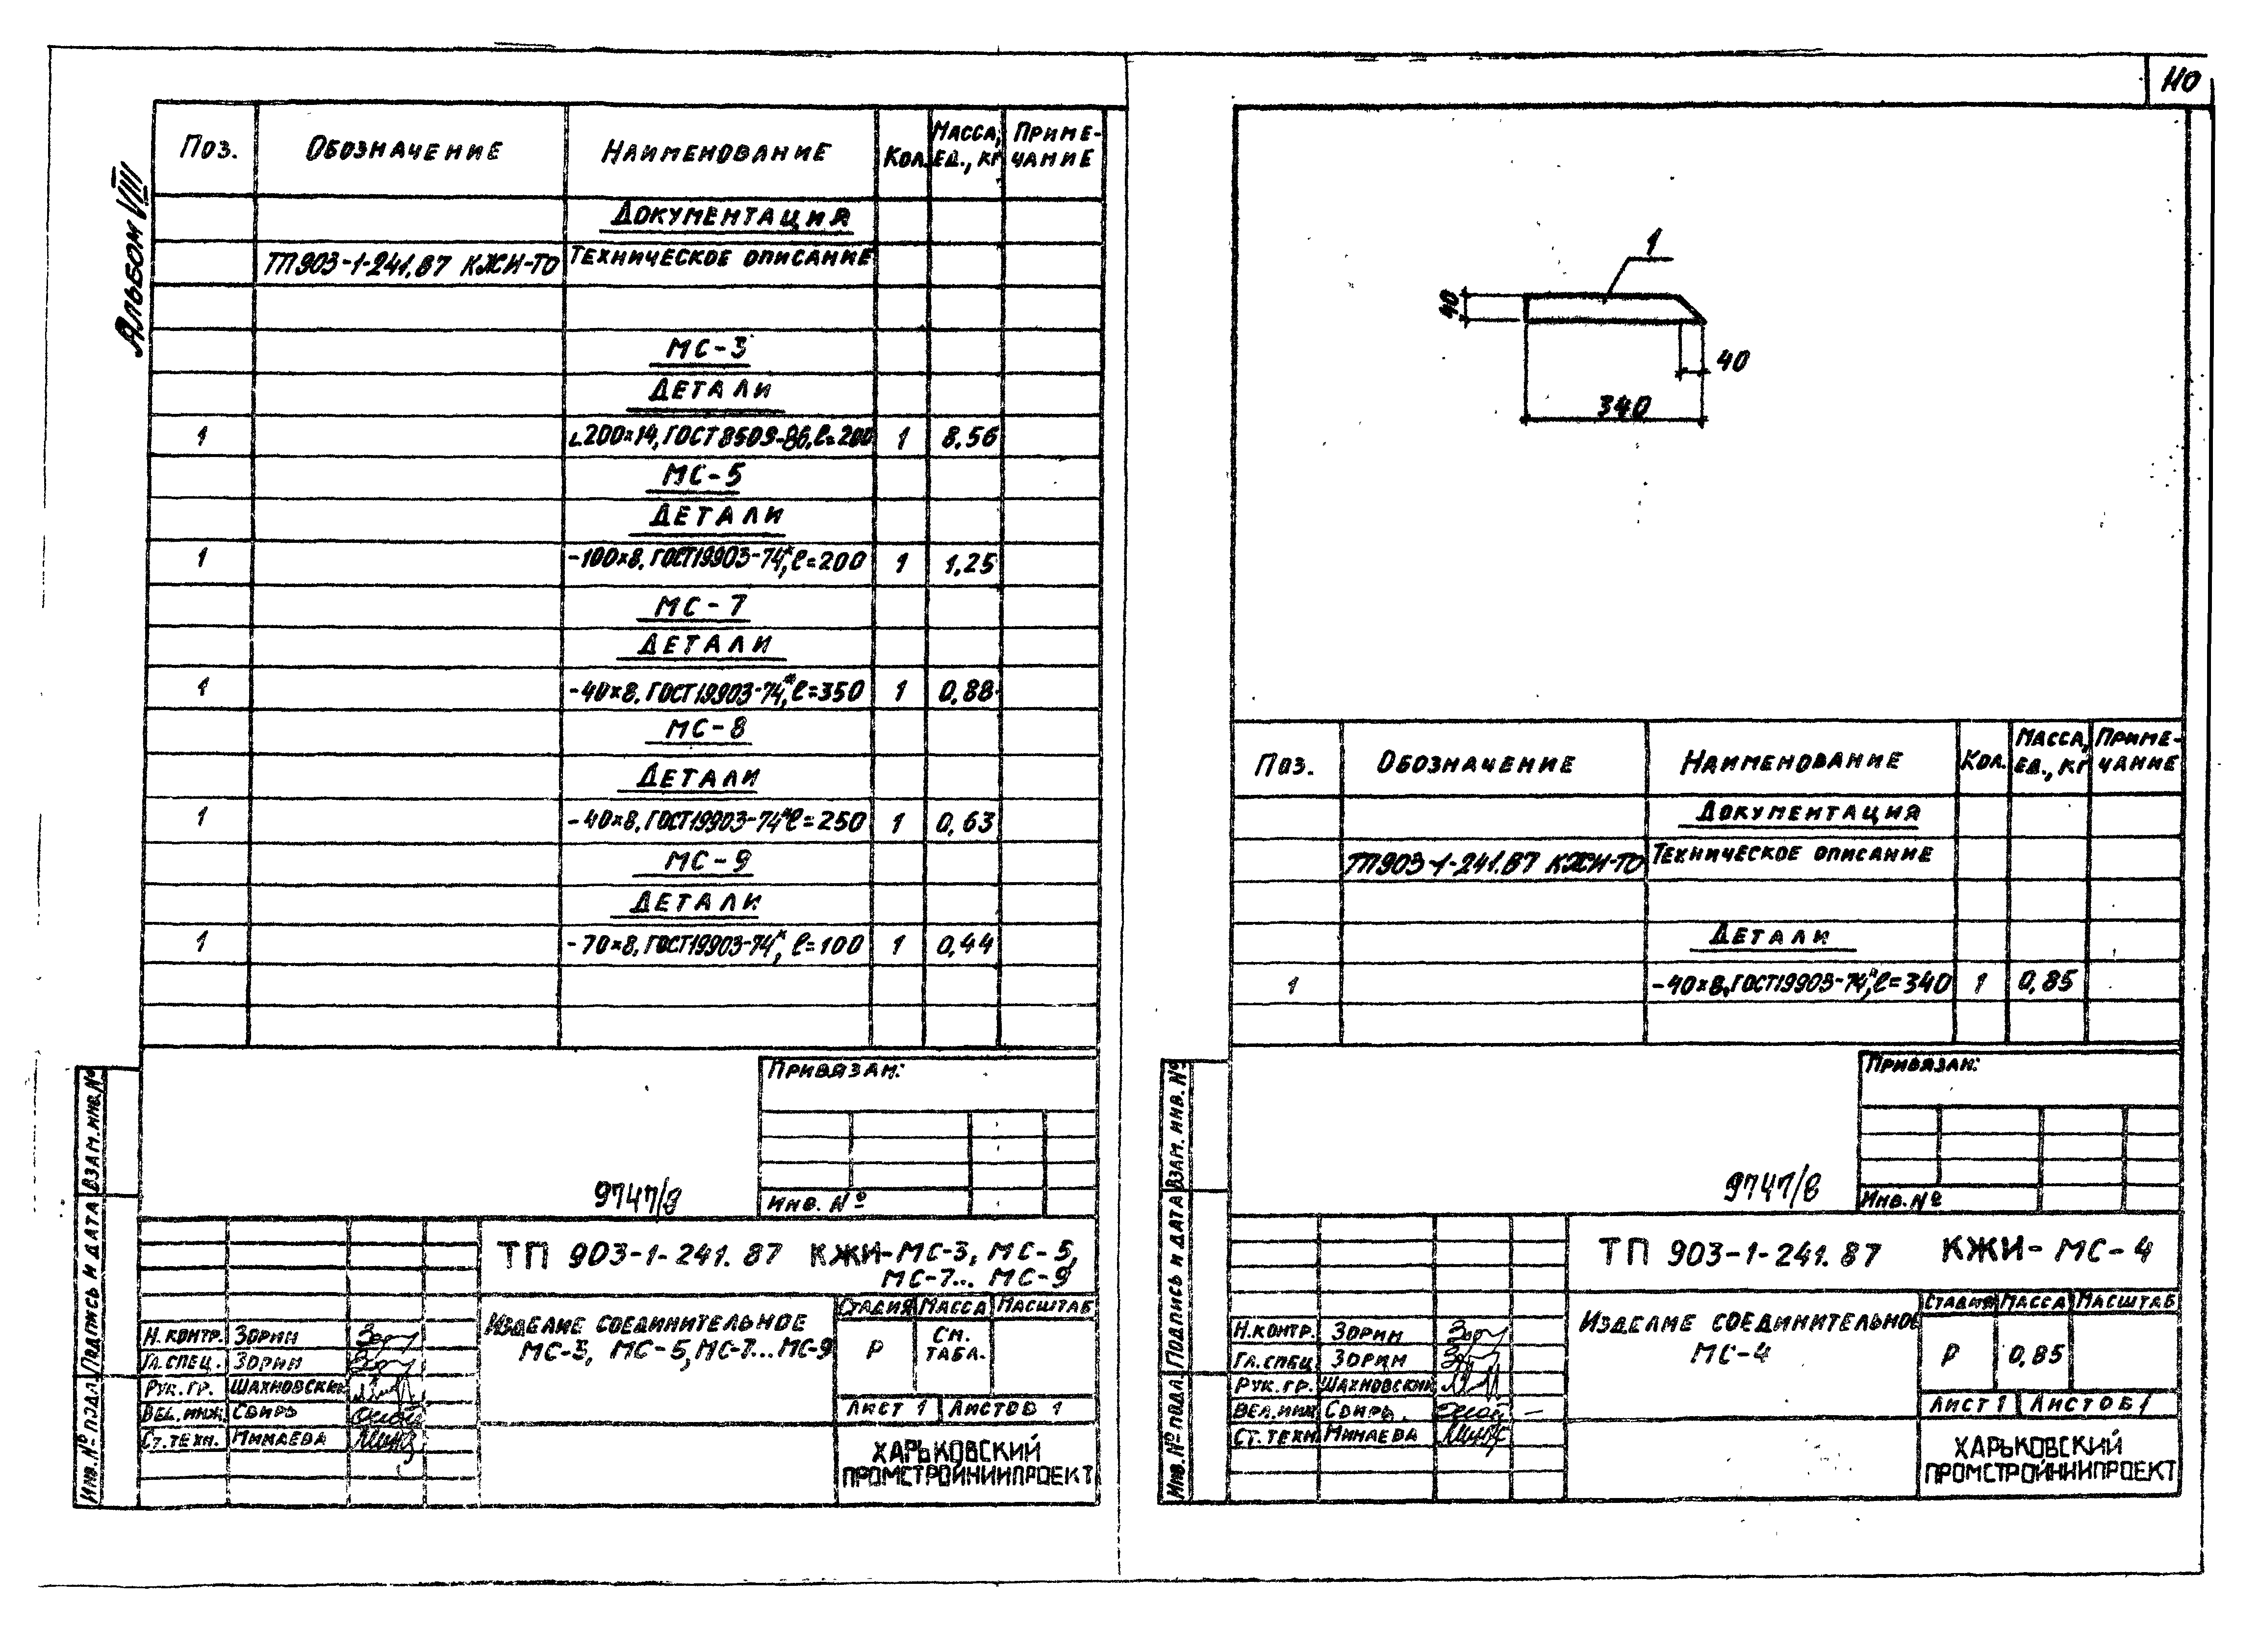 Альбом VIII
Поз. Обозначение Наименование Кол. Масса, ед., кг Приме-чание
Документация
ТП903-1-241.87 КЖИ-ТО Техническое описание
МС-3
Детали
1 ∟200×14, ГОСТ8509-86, ℓ=200 1 8.56
МС-5
Детали
1 -100×8, ГОСТ19903-74*, ℓ=200 1 1.25
МС-7
Детали
1 -40×8, ГОСТ19903-74*, ℓ=350 1 0,88
МС-8
Детали
1 -40×8, ГОСТ19903-74* ℓ=250 1 0,63
МС-9
Детали
1 -70×8, ГОСТ19903-74*, ℓ=100 1 0,44
Привязан:
Инв. №
9747/8
ТП 903-1-241.87 КЖИ-МС-3, МС-5,
МС-7... МС-9
Изделие соединительное
МС-3, МС-5, МС-7...МС-9
Стадия Масса Масштаб
Р См. табл.
Лист 1 Листов 1
Харьковский
Промстройниипроект
Н.контр. Зорин
Гл.спец. Зорин
Рук.гр. Шахновский
Вед.инж. Свирь
Ст.техн. Минаева
Взам.инв.№
Подпись и дата
Инв.№ подл
110
1
40
40
340
Поз. Обозначение Наименование Кол. Масса, ед., кг Приме-чание
Документация
ТП903-1-241.87 КЖИ-ТО Техническое описание
Детали
1 -40×8, ГОСТ19903-74*, ℓ=340 1 0,85
Привязан:
Инв. №
9747/8
ТП 903-1-241.87 КЖИ-МС-4
Изделие соединительное
МС-4
Стадия Масса Масштаб
Р 0,85
Лист 1 Листов 1
Харьковский
Промстройниипроект
Н.контр. Зорин
Гл.спец. Зорин
Рук.гр. Шахновский
Вед.инж Свирь.
Ст.техн Минаева
Взам.инв.№
Подпись и дата
Инв.№ подл.